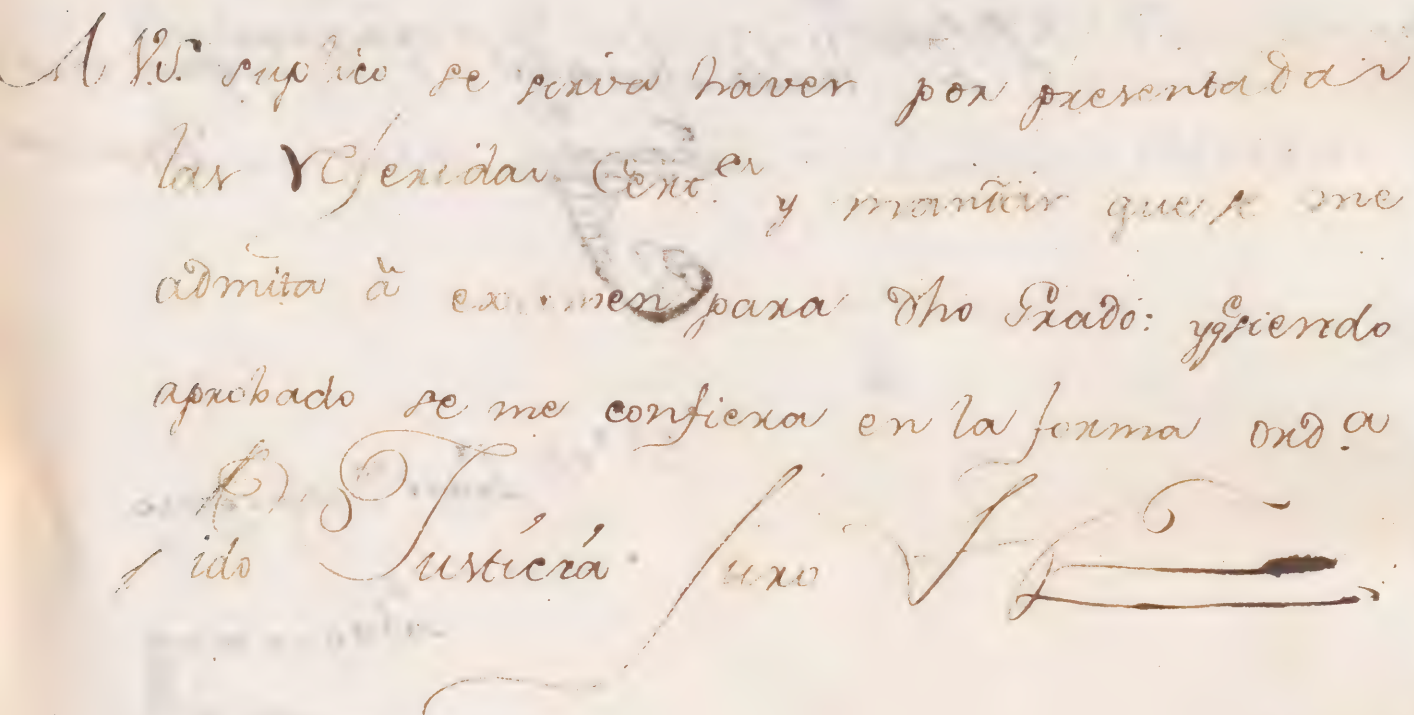 A V.S. suplico se sirva haver por presentadas
las referidas Cert.es y mandar que se me
admita à examen para dho Grado: y q.e siendo
aprobado se me confiera en la forma ord.a
Pido Justicia Juro V